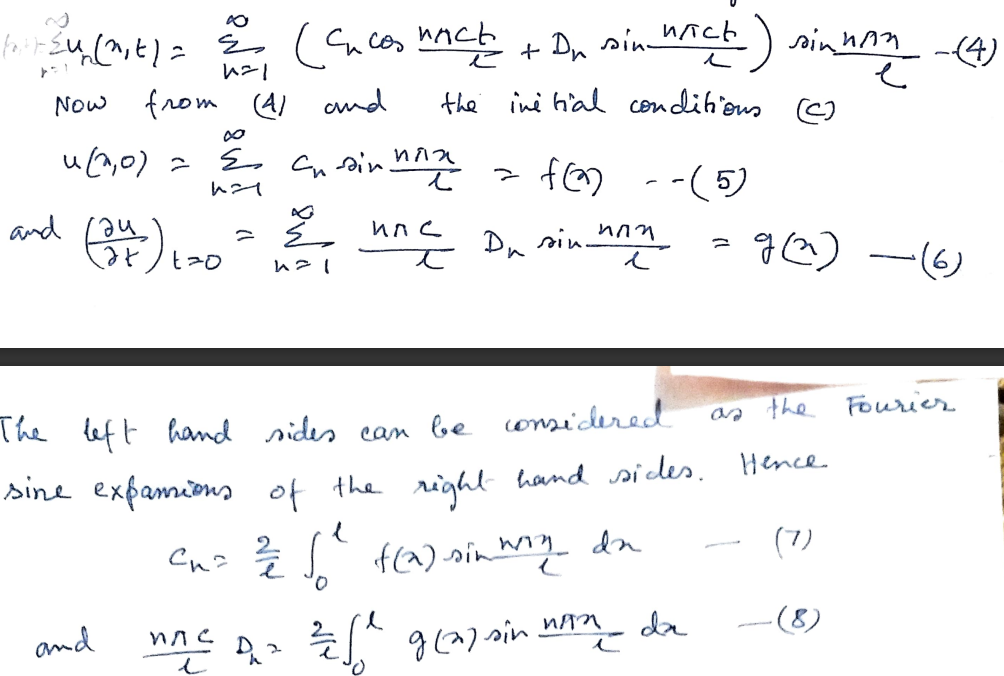 ∞
Σuₙ(x,t) = Σ_{n=1}^{∞} ( Cₙ cos nπct/l + Dₙ sin nπct/l ) sin nπx/l --(4)
Now from (4) and the initial conditions (C)
u(x,0) = Σ_{n=1}^{∞} Cₙ sin nπx/l = f(x) --(5)
and (∂u/∂t)_{t=0} = Σ_{n=1}^{∞} nπc/l Dₙ sin nπx/l = g(x) —(6)
The left hand sides can be considered as the Fourier
sine expansions of the right hand sides. Hence
Cₙ = 2/l ∫₀^l f(x) sin nπx/l dx — (7)
and nπc/l Dₙ = 2/l ∫₀^l g(x) sin nπx/l dx —(8)